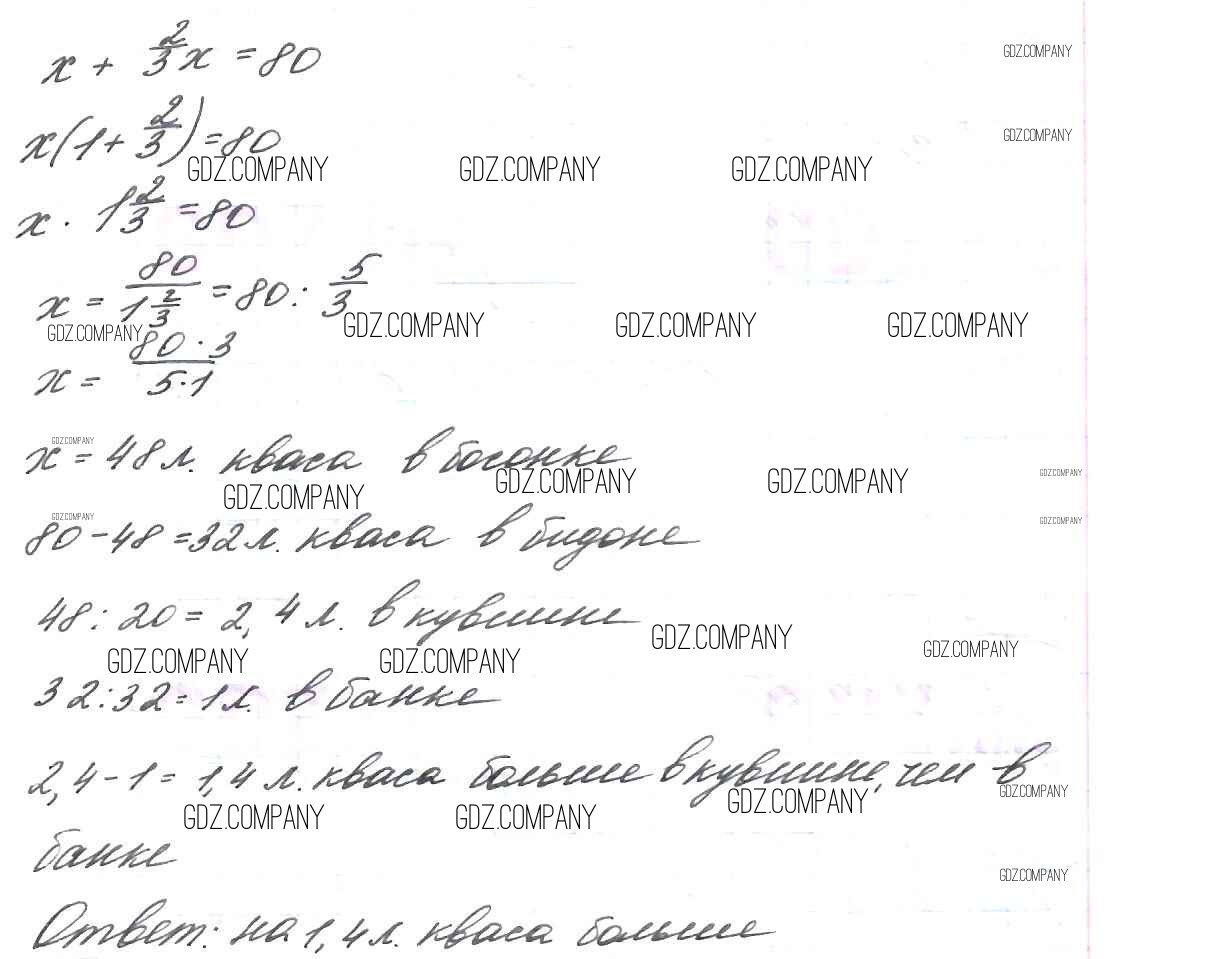 x + 2/3 x = 80
GDZ.COMPANY
x(1 + 2/3) = 80
GDZ.COMPANY
GDZ.COMPANY GDZ.COMPANY GDZ.COMPANY
x · 1 2/3 = 80
x = 80 / 1 2/3 = 80 : 5/3
GDZ.COMPANY GDZ.COMPANY GDZ.COMPANY GDZ.COMPANY
x = 80 · 3 / 5 · 1
GDZ.COMPANY
x = 48 л. кваса в бочонке
GDZ.COMPANY GDZ.COMPANY GDZ.COMPANY GDZ.COMPANY
GDZ.COMPANY GDZ.COMPANY
80 - 48 = 32 л. кваса в бидоне
48 : 20 = 2,4 л. в кувшине
GDZ.COMPANY GDZ.COMPANY
GDZ.COMPANY GDZ.COMPANY
32 : 32 = 1 л. в банке
2,4 - 1 = 1,4 л. кваса больше в кувшине, чем в
GDZ.COMPANY GDZ.COMPANY GDZ.COMPANY GDZ.COMPANY
банке
GDZ.COMPANY
Ответ: на 1,4 л. кваса больше